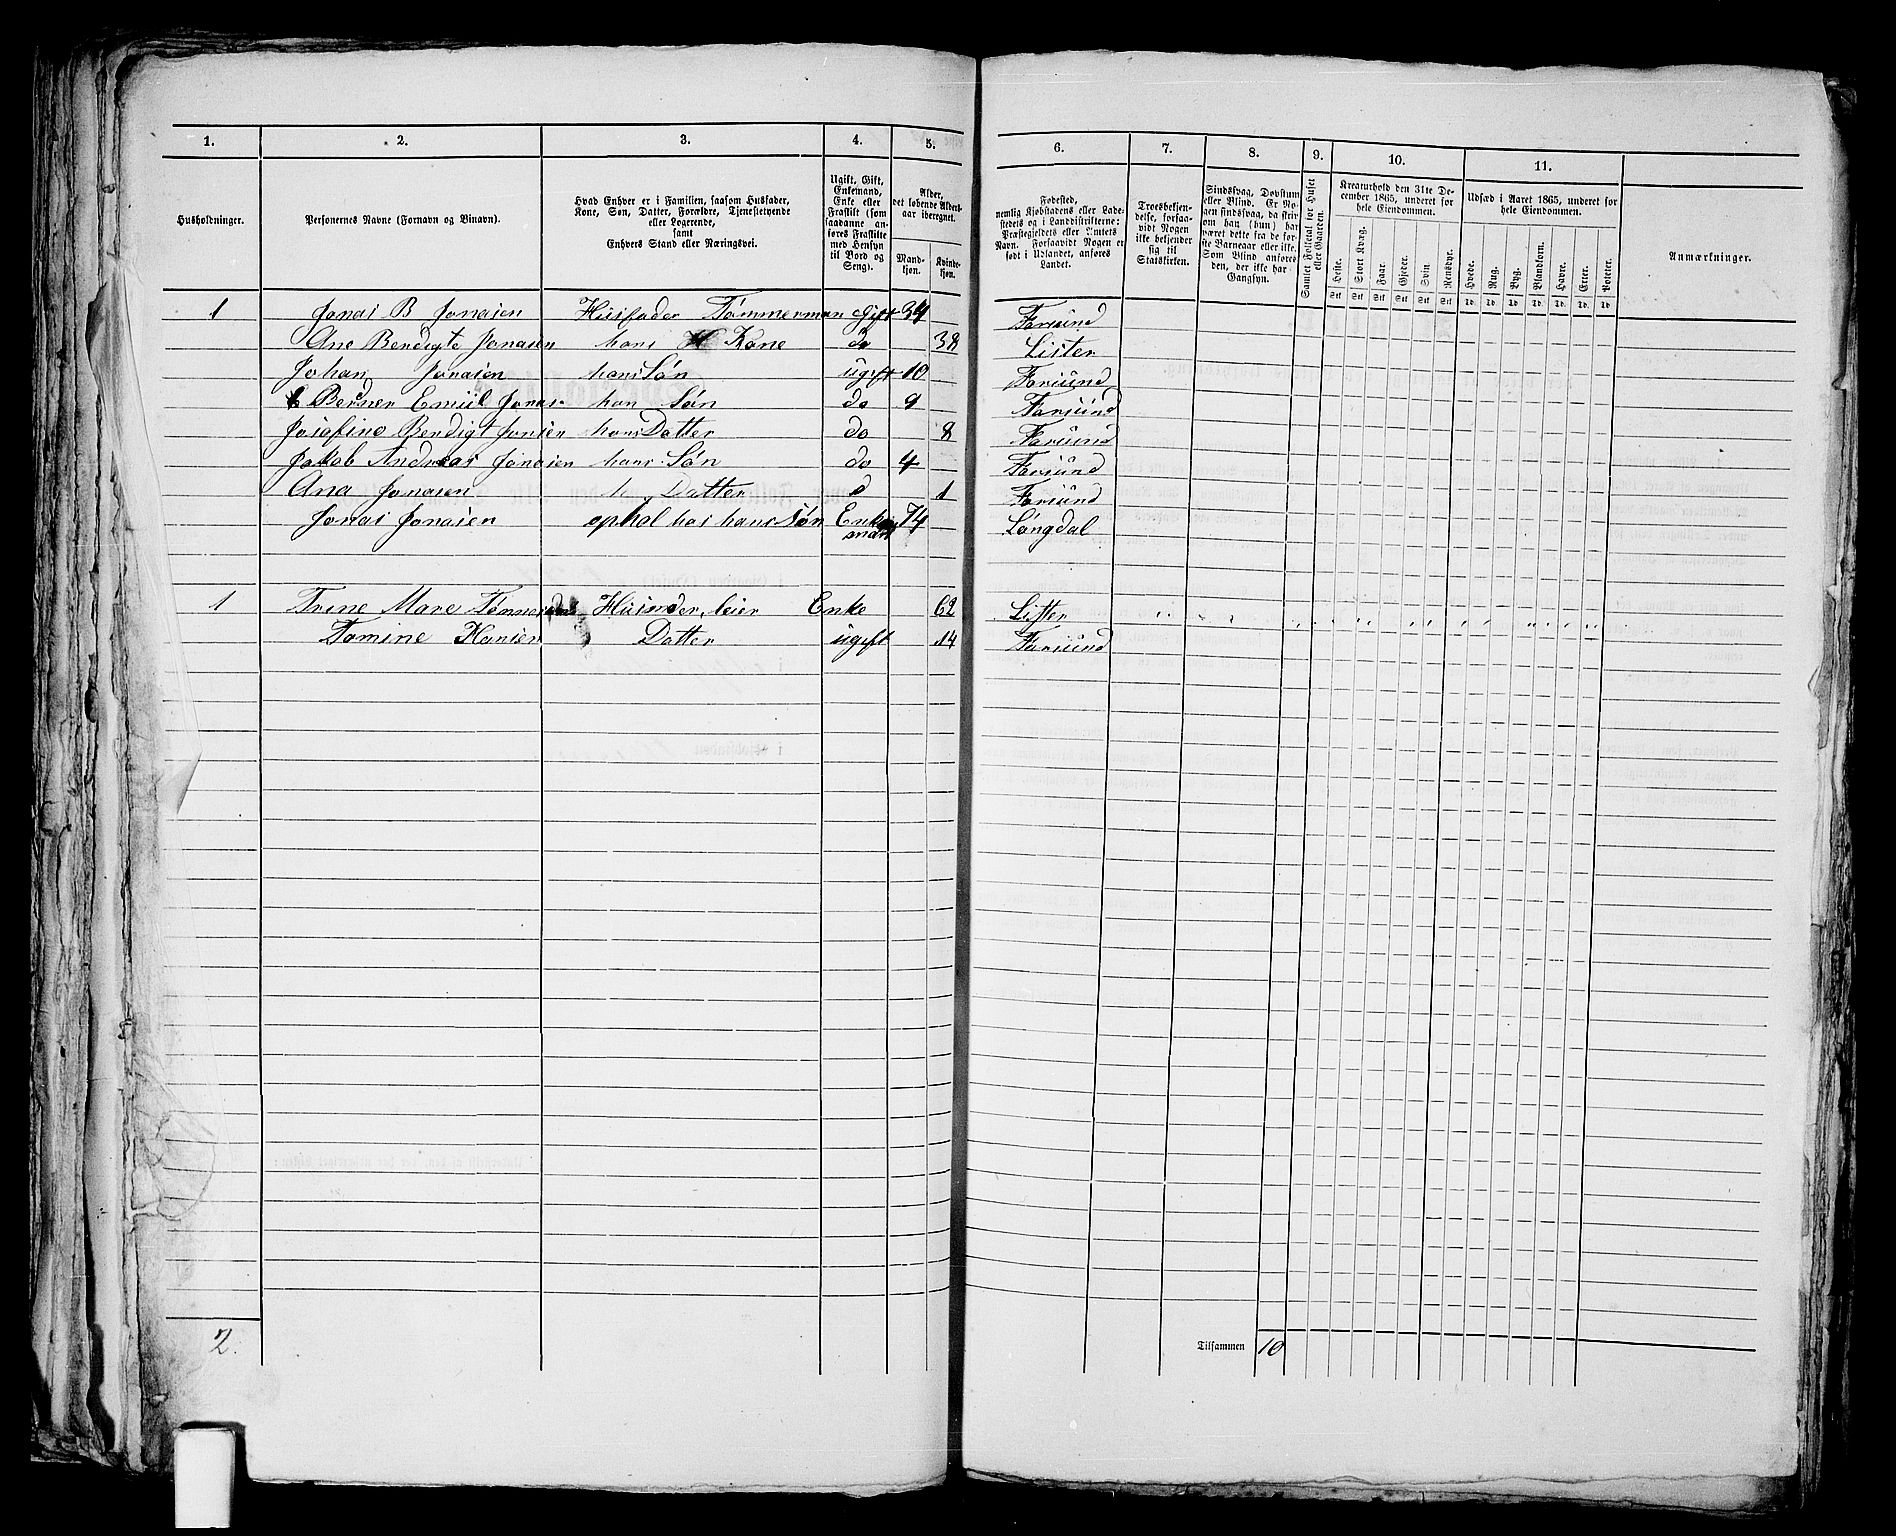 1. 2. 3. 4. 5. 6. 7. 8. 9. 10. 11.
Husholdninger.
Personernes Navne (Fornavn og Binavn).
Hvad Enhver er i Familien, saasom Husfader, Kone, Søn, Datter, Forældre, Tjenestetyende eller Logerende, samt Enhvers Stand eller Næringsvei.
Ugift, Gift, Enkemand, Enke eller Fraskilt (som saadanne anføres Fraskilte med Hensyn til Bord og Seng).
Alder, det løbende Alders-aar iberegnet.
Mand-kjøn. Kvinde-kjøn.
Fødested, nemlig Kjøbstadens eller Ladestedets og i Landdistrikterne: Præstegjeldets eller Amtets Navn. Forsaavidt Nogen er født i Udlandet, anføres Landet.
Troesbekjendelse, forsaavidt Nogen ikke bekjender sig til Statskirken.
Sindssvag, Døvstum eller Blind. Er Nogen sindssvag, da skrives om han (hun) har været dette fra de første Barneaar eller ikke. Som Blind anføres den, der ikke har Gangsyn.
Samlet Folketal for Huset eller Gaarden.
Kreaturhold den 31te December 1865, underet for hele Eiendommen.
Heste. Stort Kvæg. Faar. Gjeder. Svin. Rensdyr.
Udsæd i Aaret 1865, underet for hele Eiendommen.
Hvede. Rug. Byg. Blandkorn. Havre. Erter. Poteter.
Anmærkninger.
1 Jonas B Jonasen Husfader Tømmerman Gift 34 Farsund
Ane Bendigte Jonasen hans Kone do 38 Lister
Johan Jonasen hans Søn ugift 10 Farsund
Berner Emiil Jonas han Søn do 9 Farsund
Josefine Bendigt Jonsen hans Datter do 8 Farsund
Jakob Andreas Jonasen hans Søn do 4 Farsund
Ana Jonasen h Datter d 1 Farsund
Jonas Jonasen ophol hos hans Søn Enke mand 74 Løngdal
1 Trene Mare Husmoder, leier Enke 62 Lister
Tomine Hansen Datter ugift 14 Farsund
2.
Tilsammen 10